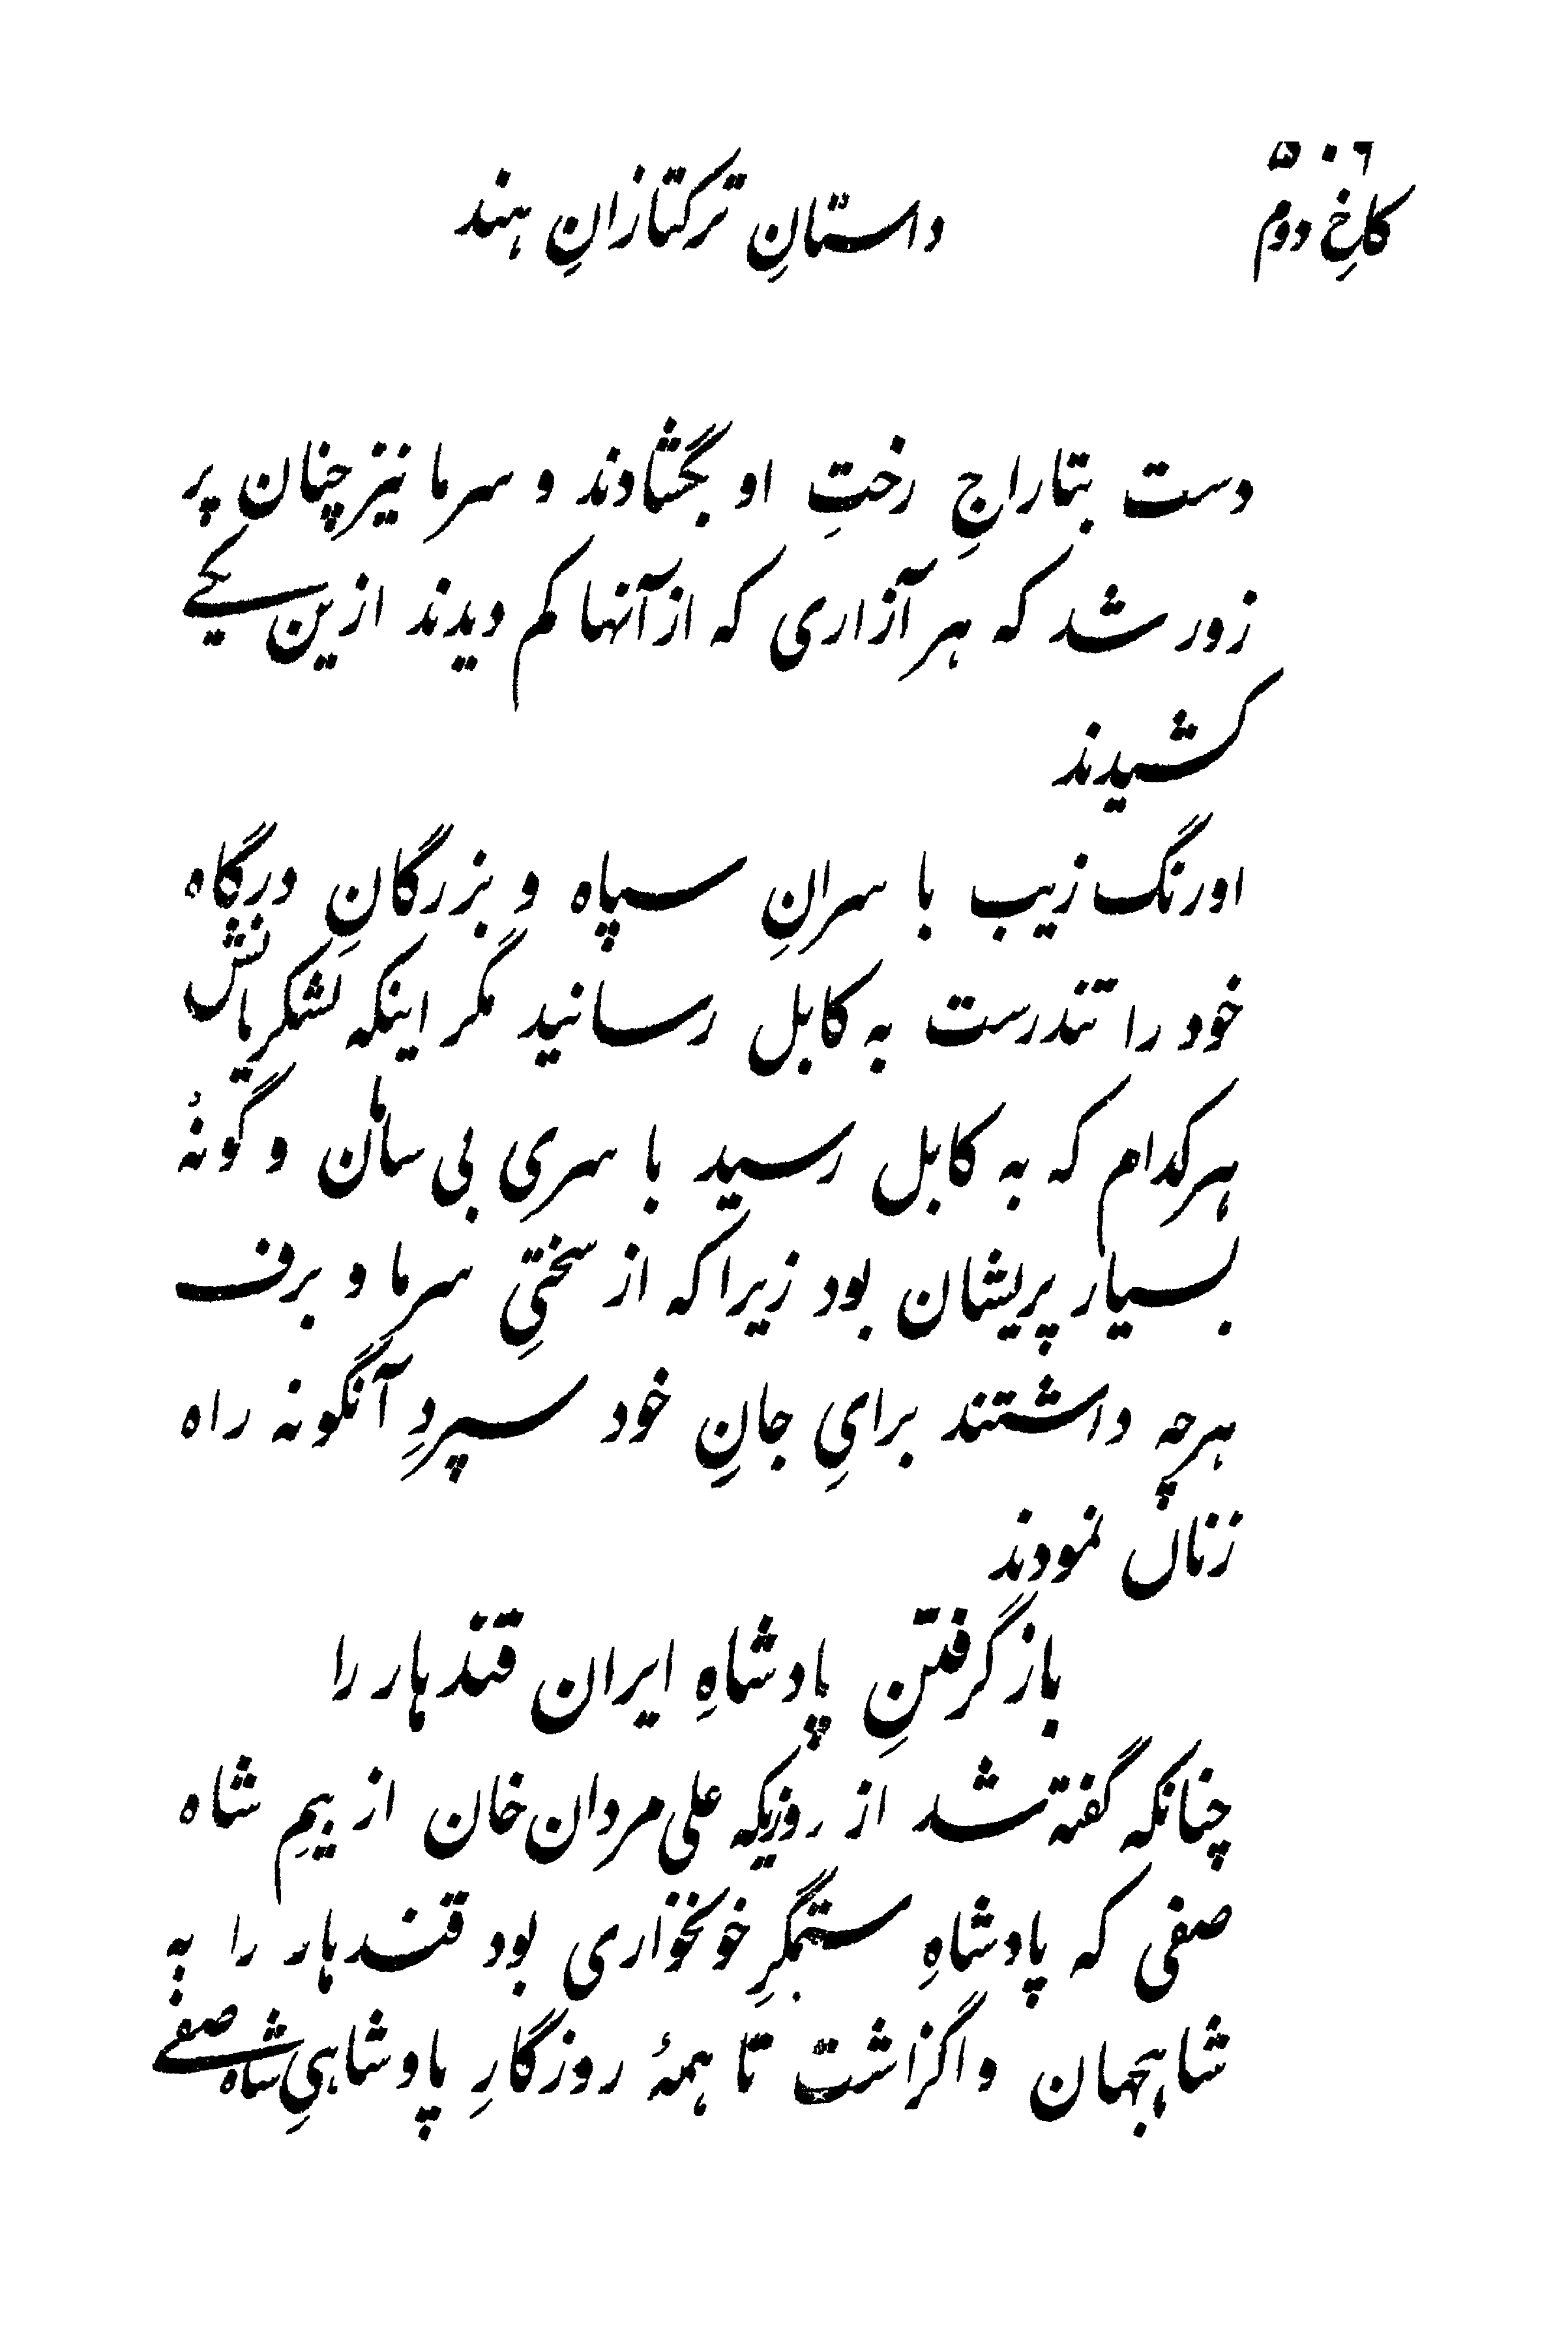 ۵۰۶
کاخِ دوم داستانِ ترکتازانِ هند
دست بتاراجِ رختِ او بگشادند و سرما نیز چنان پر
زور شد که هر آزاری که از آنها کم دیدند ازین یکے
کشیدند
اورنگ زیب با سرانِ سپاه و بزرگانِ درگاه
خود را تندرست به کابل رسانید مگر اینکه لشکریانش
هر کدام که به کابل رسید با سری بی سامان و گونهٔ
بسیار پریشان بود زیرا که از سختیِ سرما و برف
هرچه داشتند برایِ جانِ خود سپردِ آنگونه راه
زنان نمودند
باز گرفتنِ پادشاهِ ایران قندهار را
چنانکه گفته شد از روزیکه علی مردان خان از بیمِ شاه
صفی که پادشاهِ ستمگرِ خونخواری بود قندهار را به
شاهجهان واگزاشت تا همهٔ روزگارِ پادشاهیِ شاه صفے